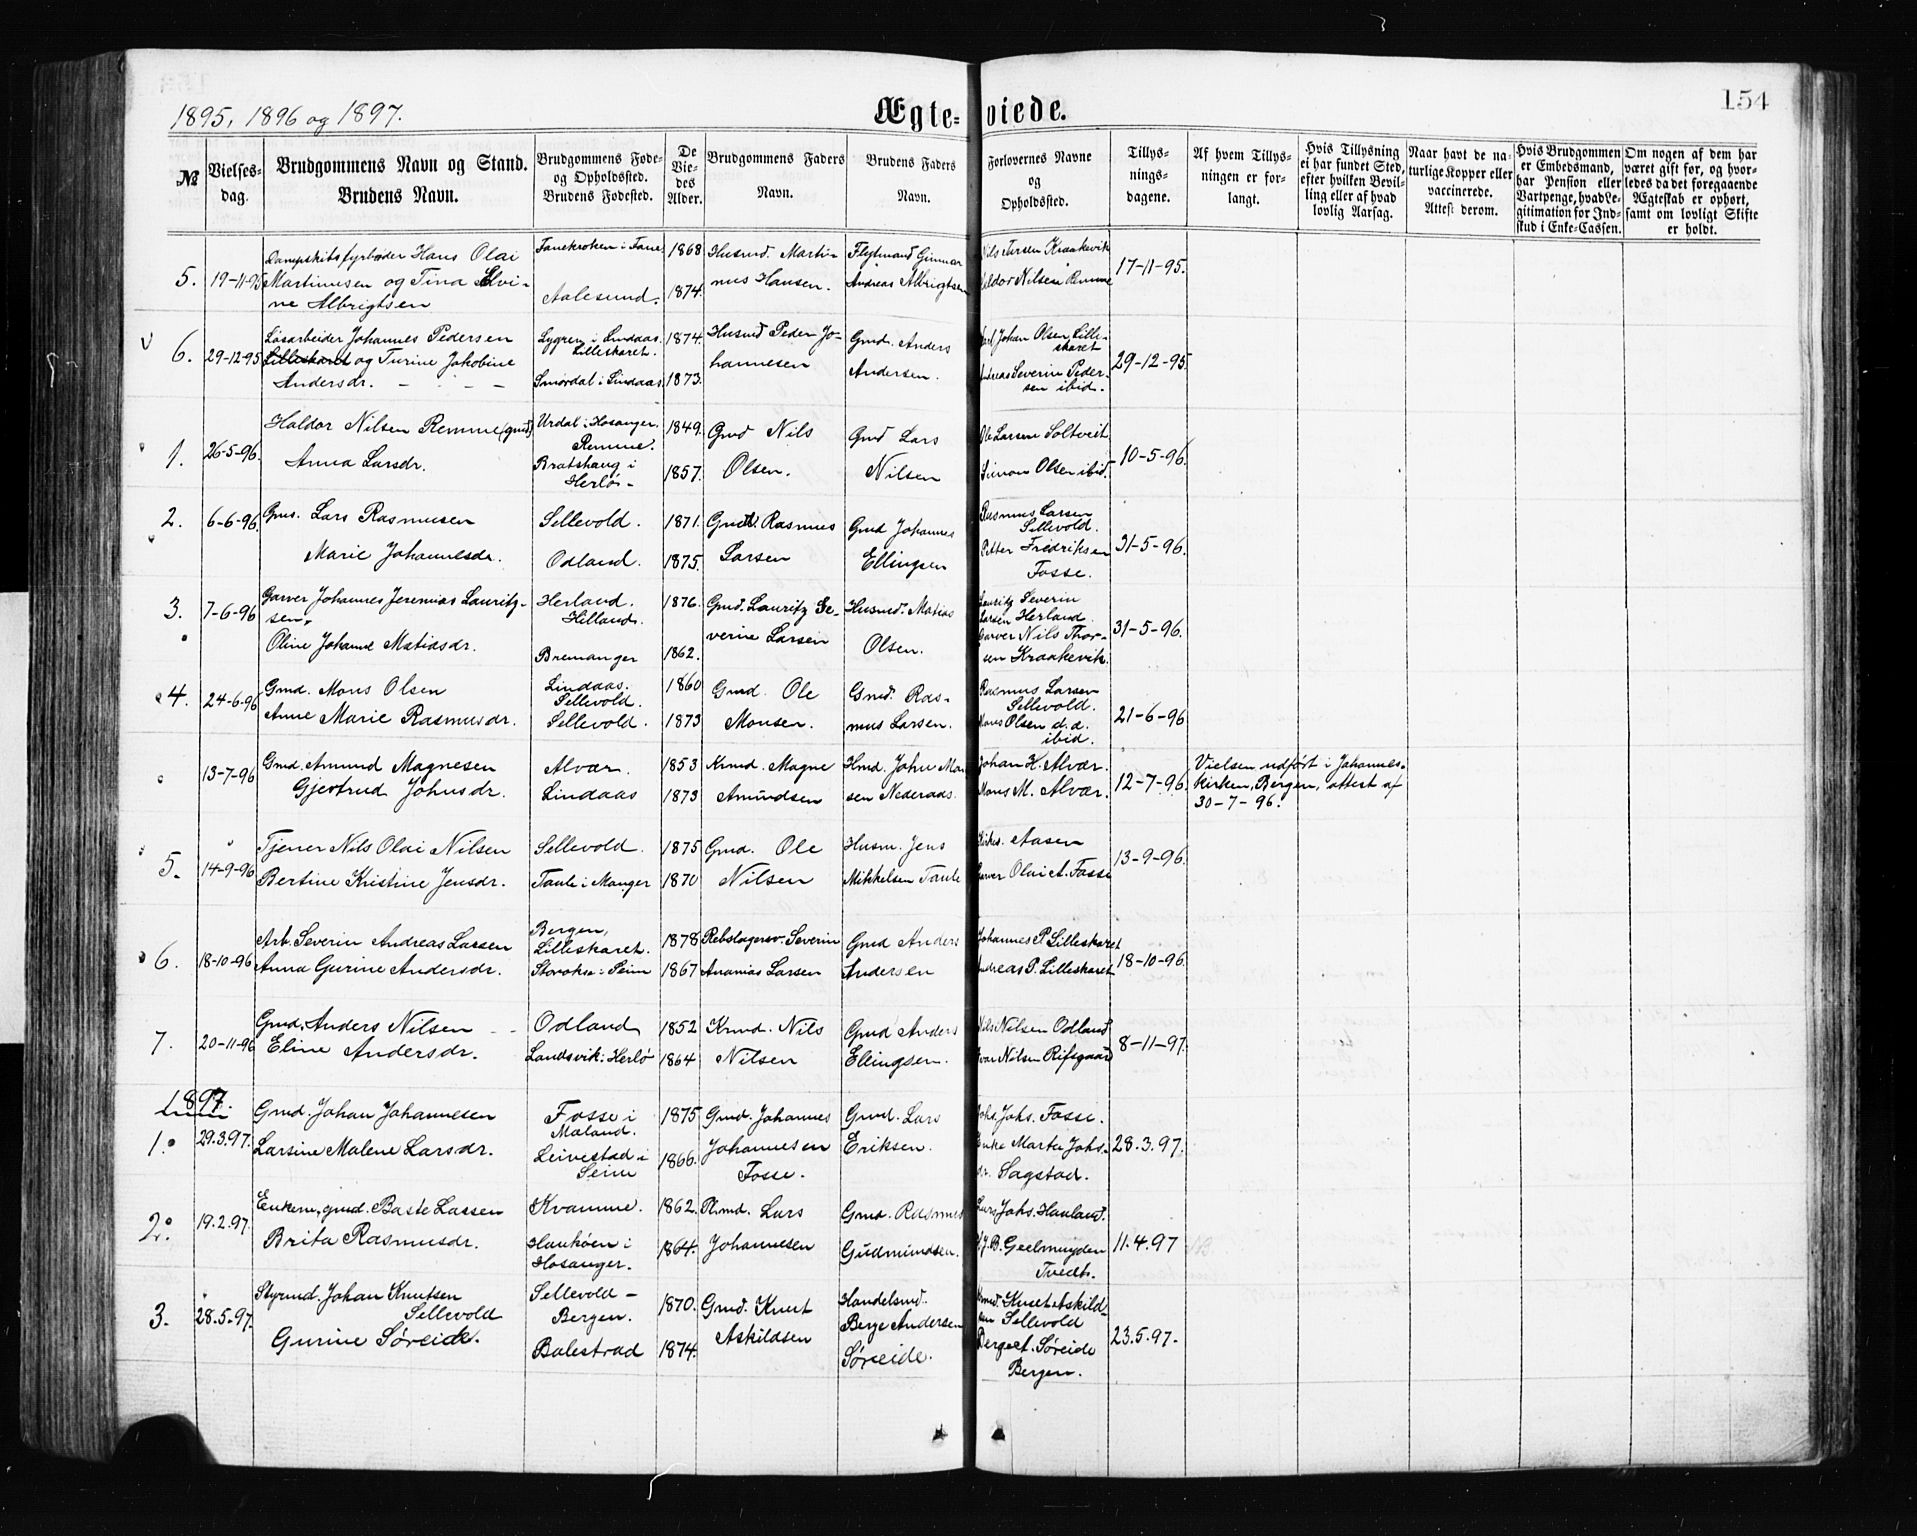 1895, 1896 og 1897.
Ægteviede.
154
№
Vielsesdag.
Brudgommens Navn og Stand.
Brudens Navn.
Brudgommens Føde-
og Opholdssted.
Brudens Fødested.
De
Vie-
des
Alder.
Brudgommens Faders
Navn.
Brudens Faders
Navn.
Forlovernes Navne
og
Opholdssted.
Tillys-
nings-
dagene.
Af hvem Tillys-
ningen er for-
langt.
Hvis Tillysning
ei har fundet Sted,
efter hvilken Bevil-
ling eller af hvad
lovlig Aarsag.
Naar havt de na-
turlige Kopper eller
vaccinerede.
Attest derom.
Hvis Brudgommen
er Embedsmand,
har Pension eller
Vartpenge, hvad Le-
gitimation for Ind-
skud i Enke-Cassen.
Om nogen af dem har
været gift før, og hvor-
ledes da det foregaaende
Ægteskab er ophørt,
samt om lovligt Skifte
er holdt.
5. 19-11-95
Dampskibsfyrbøder Hans Olai
Martinusen og Tina Elvi-
ne Albrigtsen
Fanekroken i Fane
Aalesund.
1868
1874.
Husmd. Marti-
nus Hansen.
Gunnar
Andreas Albrigtsen
Nils Kraakevik
Haldor Nilsen Remme
17-11-95.
6. 29-12-95
Løsarbeider Johannes Pedersen
Lilleskaret og Turine Jakobine
Andersdr.
Lygren i Lindaas.
Lilleskaret.
Smørdal i Lindaas
1874
1873.
Husmd Peder Jo-
hannesen
Gmd. Anders
Andersen.
Karl Johan Olsen Lille-
skaret
Andreas Severin Peder-
sen ibid.
29-12-95.
1. 26-5-96.
Haldor Nilsen Remme (gmd)
Anna Larsdr.
Urdal i Hosanger.
Remme.
Bratshaug i
Herlø-
1849.
1857.
Gmd Nils
Olsen.
Gmd Lars
Nilsen
Ole Larsen Soltveit
Simon Olsen ibid.
10-5-96.
2. 6-6-96.
Gms. Lars Rasmusen
Marie Johannesdr.
Sellevold.
Odland.
1871.
1875.
Gmd. Rasmus
Larsen
Gmd Johannes
Ellingsen
Rasmus Larsen
Sellevold.
Petter Fredriksen
Fosse.
31-5-96.
3. 7-6-96
Garver Johannes Jeremias Lauritz-
sen.
Oline Johanne Matiasdr.
Herland.
Hilland.
Bremanger
1876.
1862.
Gmd. Lauritz Se-
verine Larsen
Husmd. Matias
Olsen.
Lauritz Severin
Larsen Herland.
Garver Nils Thor-
sen Kraakevik.
31-5-96.
4. 24-6-96
Gmd. Mons Olsen
Anne Marie Rasmusdr.
Lindaas.
Sellevold.
Sellevold.
1860
1873
Gmd. Ole
Monsen.
Gmd. Ras-
mus Larsen.
Rasmus Larsen
Sellevold.
Mons Olsen d.a.
ibid.
21-6-96
13-7-96
Gmd. Amund Magnesen
Gjertrud Johnsdr.
Alvær.
Lindaas
1853
1873
Kmd. Magne
Amundsen
Hmd. John Mon-
sen Nederaas.
Johan H. Alvær.
Mons M. Alvær.
12-7-96.
Vielsen udført i Johannes-
kirken, Bergen, attest af
30-7-96.
5. 14-9-96
Tjener Nils Olai Nilsen
Bertine Kristine Jensdr.
Sellevold.
Taule i Manger
1875
1870
Gmd. Ole
Nilsen
Husm. Jens
Mikkelsen Taule
Kirkes. Aasen
Garver Olai A. Fosse
13-9-96.
6. 18-10-96
Arb. Severin Andreas Larsen
Anna Gurine Andersdr.
Bergen,
Lilleskaret.
i Seim
1878
1867
Rebslagersv. Severin
Ananias Larsen
Gmd Anders
Andersen
Johannes P. Lilleskaret
Andreas P. Lilleskaret
18-10-96.
7. 20-11-96
Gmd. Anders Nilsen
Eline Andersdr.
Odland
Landsvik i Herlø
1852
1864
Kmd. Nils
Nilsen
Gmd Anders
Ellingsen.
Nils Nilsen Odland
Ivar Nilsen Rifsgaard
8-11-97.
1897.
1. 29.3.97.
Gmd. Johan Johannesen
Larsine Malene Larsdr.
Fosse i
Mæland.
Leivestad i
Seim
1875
1866.
Gmd. Johannes
Johannesen
Fosse.
Gmd. Lars
Eriksen.
Johs. Johs. Fosse.
Enke Marta Johs-
dr. Sagstad.
28.3.97.
2. 19.2.97.
Enkem., gmd. Baste Lassen
Brita Rasmusdr.
Kvamme.
Haukøen i
Hosanger.
1862.
1864.
Lars
Johannesen
Gmd. Rasmus
Gudmundsen.
Lars Johs. Hauland.
B. Geelmuyden
Tvedt.
11.4.97
3. 28.5.97.
Styrmd. Johan Knutsen
Sellevold
Gurine Søreide.
Sellevold -
Bergen.
Balestrad
1870.
1874.
Gmd. Knut
Askildsen
Handelsmd.
Berge Andersen
Søreide.
Gmd. Knut Askild-
sen Sellevold
Berge A. Søreide
Bergen.
23.5.97.